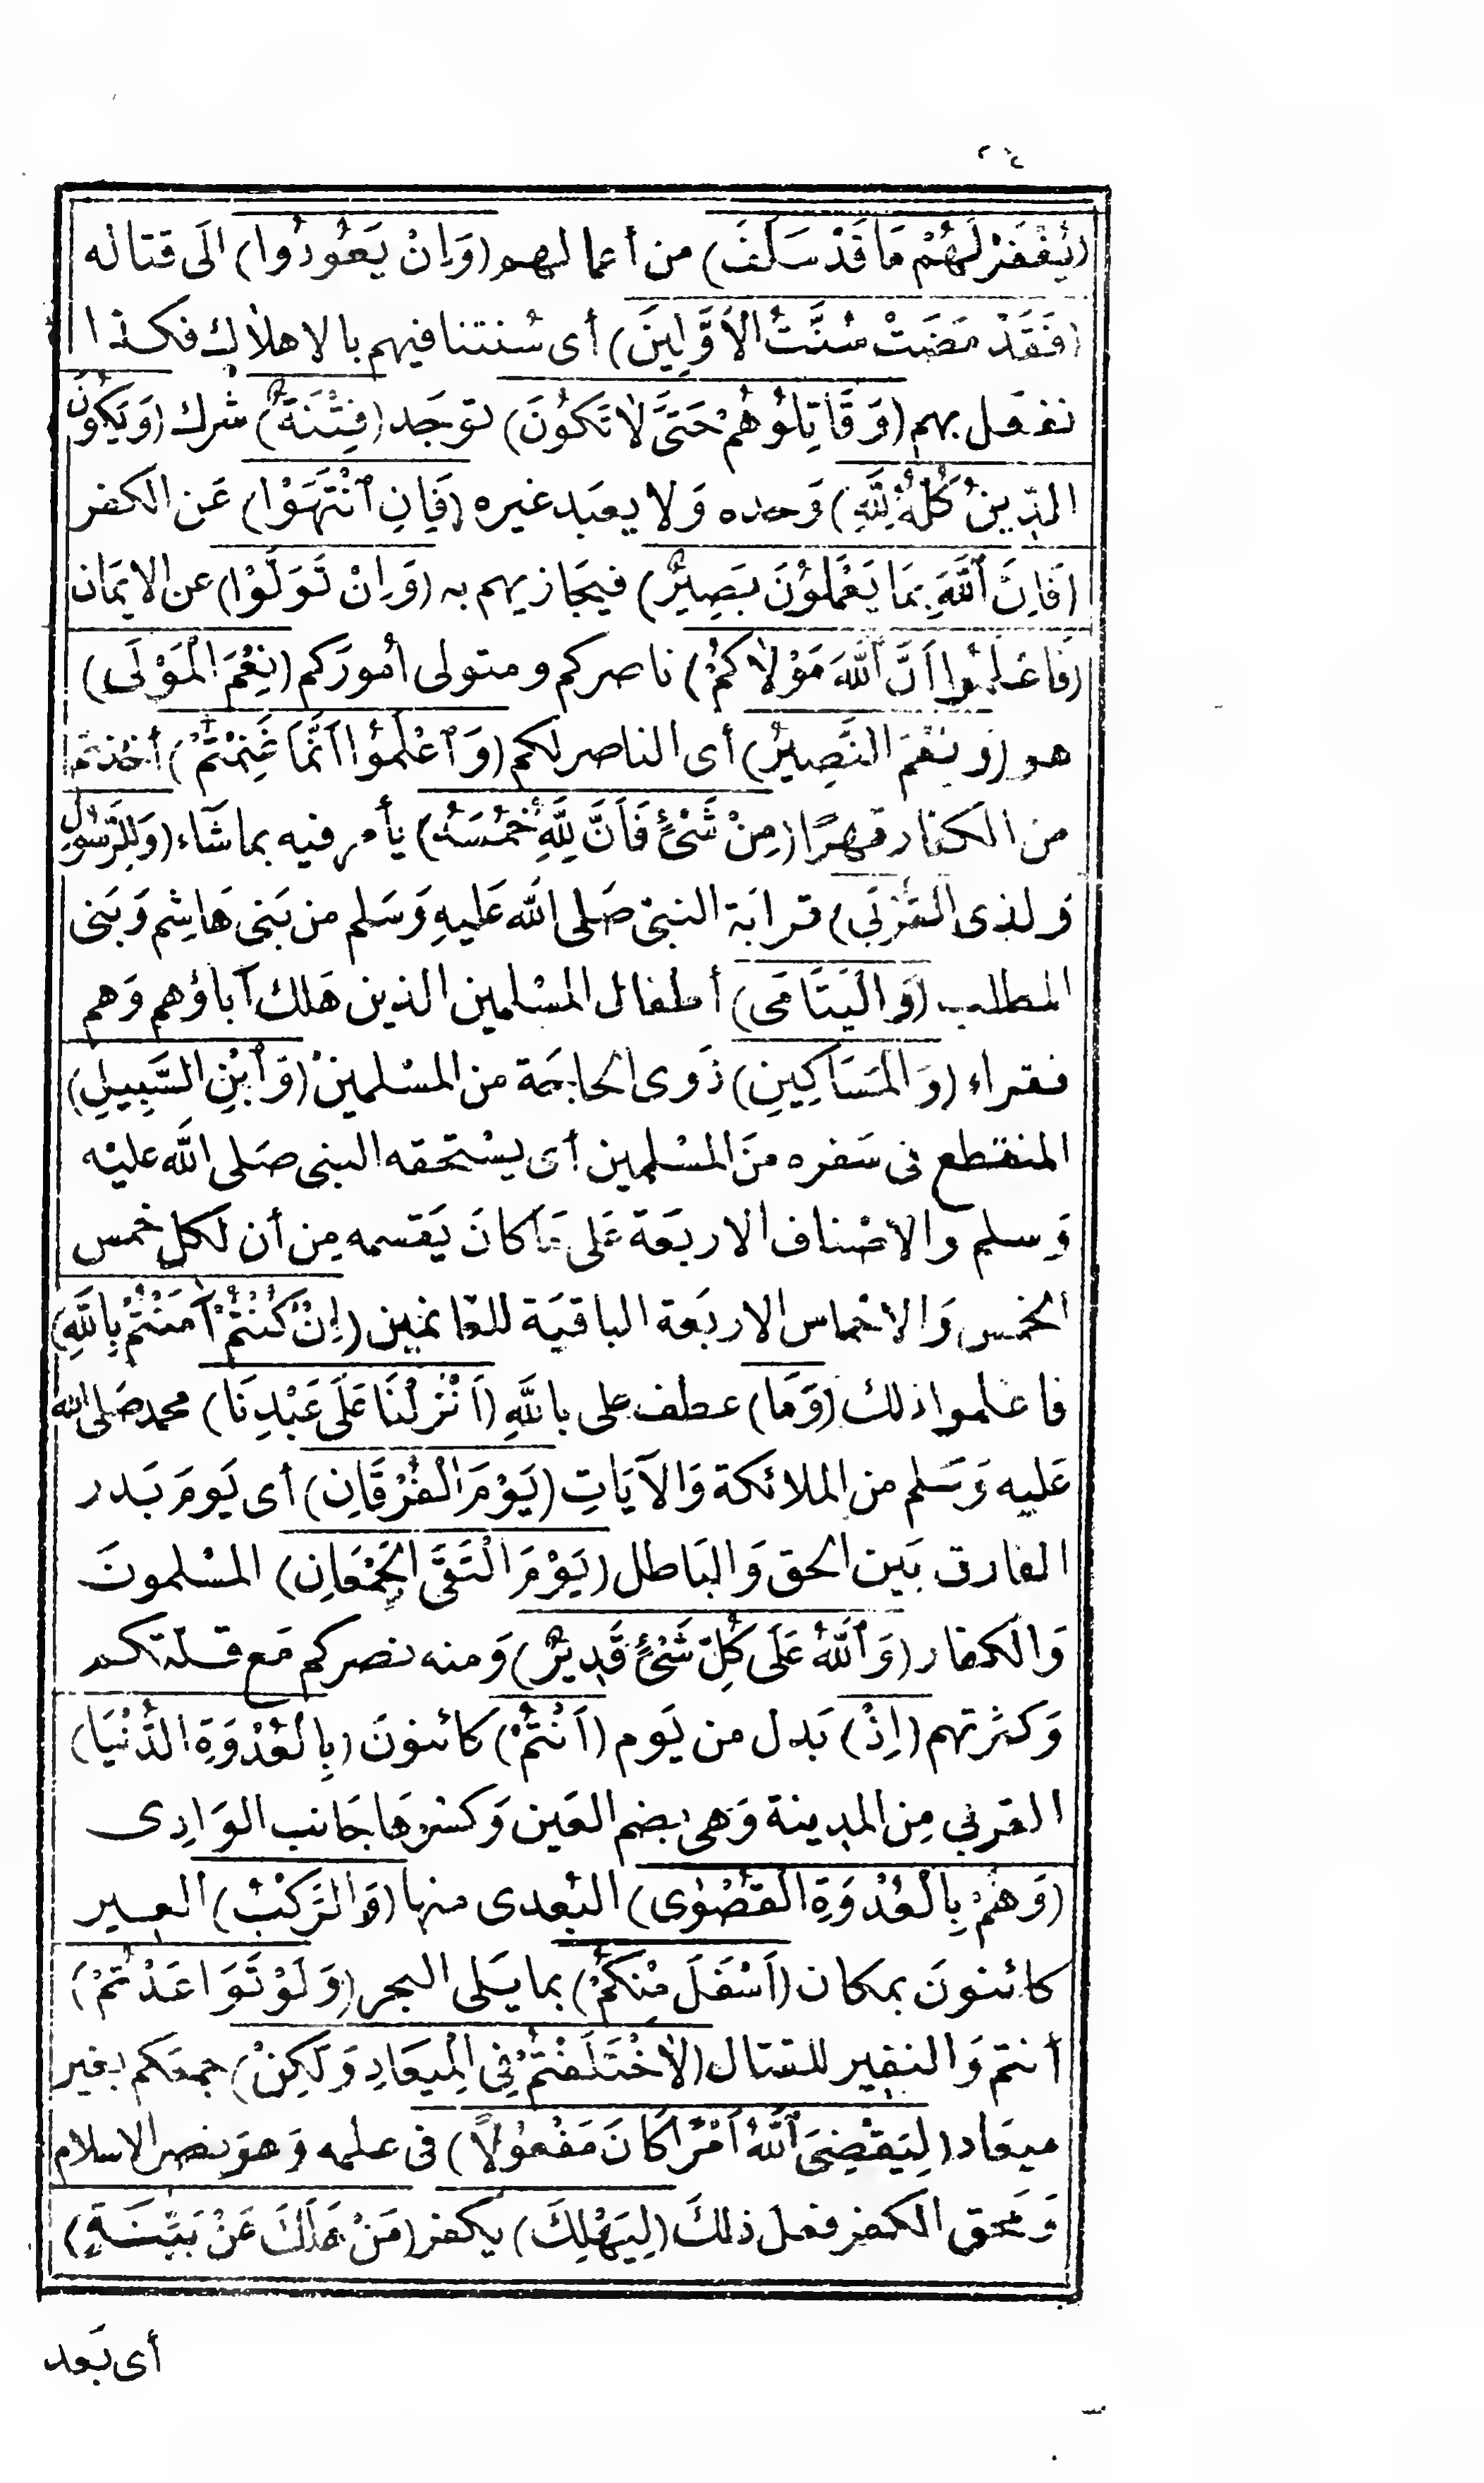 (يُغْفَرْ لَهُمْ مَا قَدْ سَلَفَ) من أعمالهم (وَإِنْ يَعُودُوا) الَى قتاله
(فَقَدْ مَضَتْ سُنَّتُ الْأَوَّلِينَ) أى سُنتنا فيهم بالاهلاك فكذا
نفعَل بهم (وَقَاتِلُوهُمْ حَتَّى لَا تَكُونَ) توجَد (فِتْنَةٌ) شرك (وَيَكُونَ
الدِّينُ كُلُّهُ لِلَّهِ) وَحده وَلا يعبَد غيره (فَإِنِ ٱنْتَهَوْا) عَن الكفر
(فَإِنَّ ٱللَّهَ بِمَا يَعْمَلُونَ بَصِيرٌ) فيجَازيهم به (وَإِنْ تَوَلَّوْا) عن الايمَان
(فَاعْلَمُوا أَنَّ ٱللَّهَ مَوْلَاكُمْ) ناصركم ومتولى أمُورَكم (نِعْمَ الْمَوْلَى)
هو (وَنِعْمَ النَّصِيرُ) أى الناصر لكم (وَٱعْلَمُوا أَنَّمَا غَنِمْتُمْ) أخذتم
من الكفار قهرًا (مِنْ شَىْءٍ فَأَنَّ لِلَّهِ خُمُسَهُ) يأمر فيه بما شَاء (وَلِلرَّسُولِ
وَلِذى القُرْبَى) قرابَة النبىّ صَلى اللَّه عَليهِ وَسَلم من بَنى هَاشِم وَبَنى
المطلب (وَالْيَتَامَى) أطفال المسْلمين الذين هَلك آباؤهم وَهم
فقراء (وَالْمَسَاكِينِ) ذَوى الحاجَة من المسْلمين (وَٱبْنِ السَّبِيلِ)
المنقطع فى سَفره منَ المسْلمين أى يسْتحقه النبى صَلى اللَّه عليْه
وَسلم والاصْناف الاربَعَة عَلى مَا كانَ يَقسمه مِن أن لكل خمس
الخمس وَالاخماس الاربَعَة الباقيَة للغَانمين (إِنْ كُنْتُمْ آمَنْتُمْ بِاللَّهِ)
فاعْلموا ذلك (وَمَا) عطف على باللَّهِ (أَنْزَلْنَا عَلَى عَبْدِنَا) محمد صَلى الله
عَليه وَسَلم من الملائكة وَالآيَاتِ (يَوْمَ الْفُرْقَانِ) أى يَومَ بَدر
الفارق بَين الحق وَالبَاطل (يَوْمَ الْتَقَى الْجَمْعَانِ) المسْلمونَ
وَالكفار (وَٱللَّهُ عَلَى كُلِّ شَىْءٍ قَدِيرٌ) وَمنه نصركم مَع قلتكم
وَكثرتهم (إِذْ) بَدل من يَوم (أَنْتُمْ) كائنونَ (بِالْعُدْوَةِ الدُّنْيَا)
القربى مِن المدينة وَهى بضم العَين وَكسْرهَا جَانب الوَادِى
(وَهُمْ بِالْعُدْوَةِ الْقُصْوَى) البُعدى منها (وَالرَّكْبُ) العير
كائنونَ بمكان (أَسْفَلَ مِنْكُمْ) بما يَلى البحر (وَلَوْ تَوَاعَدْتُمْ)
أنتم وَالنفير للقتال (لَاخْتَلَفْتُمْ فِى الْمِيعَادِ وَلَكِنْ) جمعَكم بغير
ميعَاد (لِيَقْضِىَ ٱللَّهُ أَمْرًا كَانَ مَفْعُولًا) فى علمه وَهوَ نصر الاسلام
وَمَحق الكفر فعل ذلكَ (لِيَهْلِكَ) يكفر (مَنْ هَلَكَ عَنْ بَيِّنَةٍ)
أى بَعد